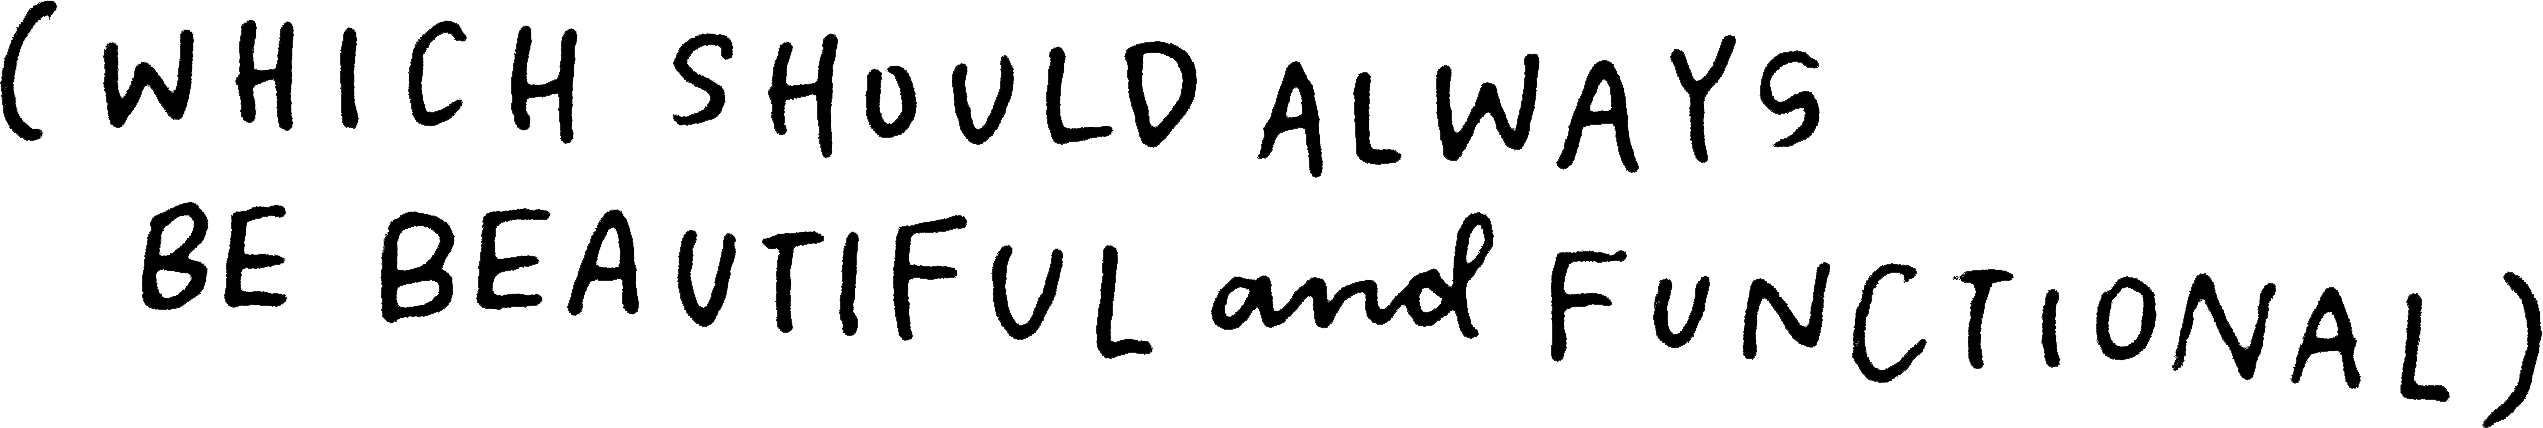 (WHICH SHOULD ALWAYS
BE BEAUTIFUL and FUNCTIONAL)